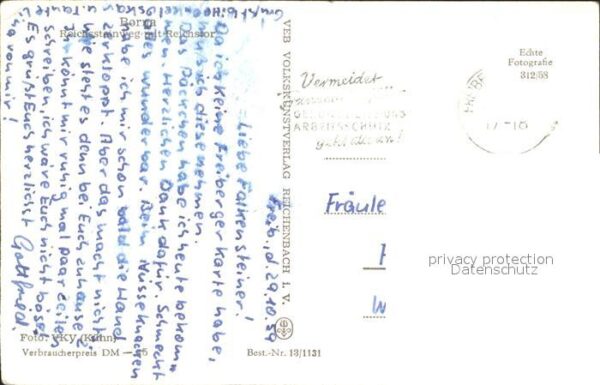 Borna
Reichsstraße
Echte
Fotografie
312/58
Vermeidet
ARBEITSSCHUTZ
geht alle an!
VEB VOLKSKUNSTVERLAG REICHENBACH I. V.
Freib., d. 29.10.59
Liebe Falkensteiner!
Da ich keine Freiberger Karte habe,
muß ich diese nehmen.
Das Päckchen habe ich heute bekom=
men. Herzlichen Dank dafür. Schmeckt
alles wunderbar. Beim Nüsseknacken
habe ich mir schon bald die Hand
zerkloppt. Aber das macht nichts.
Wie steht es denn bei Euch zuhause?
Ihr könnt mir ruhig mal paar Zeilen
schreiben, ich wäre Euch nicht böse.
Es grüßt Euch herzlichst Gottfried.
von mir!
Fräule
privacy protection
Datenschutz
Foto: VKV (Kühn)
Verbraucherpreis DM
Best.-Nr. 13/1131